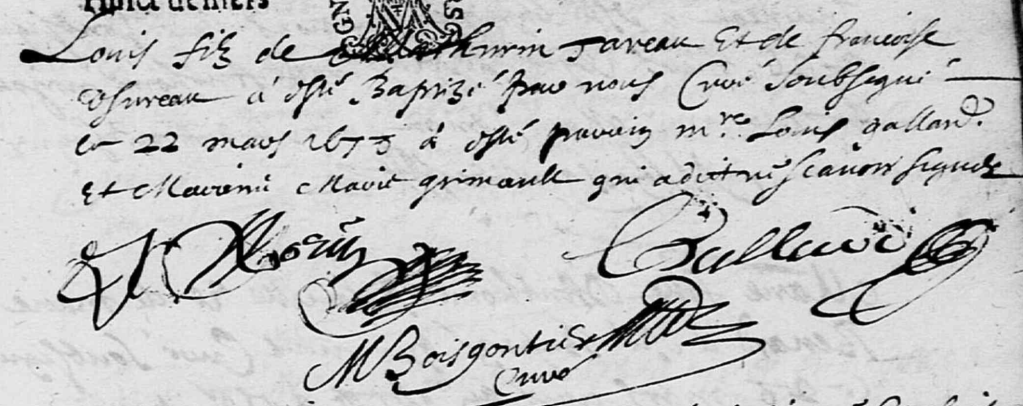 Louis filz de Mathurin Taveau Et de francoise
a esté Baptizé par nous Curé soubsigné
le 22 mars 1673 a esté parain mre Louis Gallard.
Et Maraine Marie grimault qui a dict ne scavoir signer
Gallard
M Boisgontier
curé